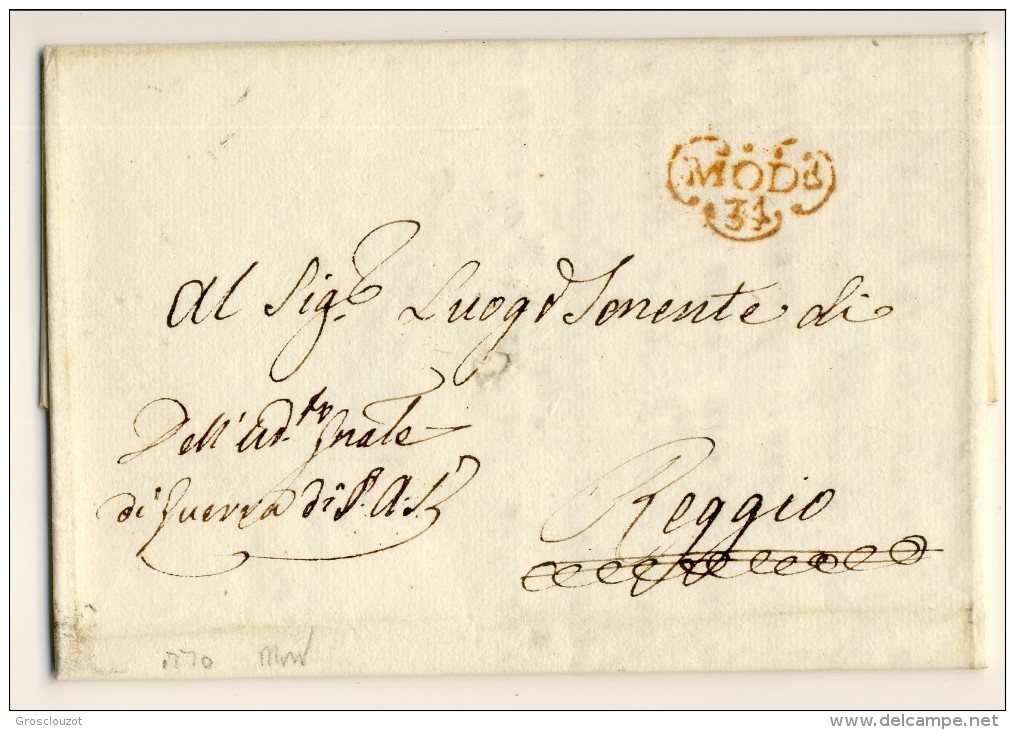 MOD
31
Al Sig.r Luogo Tenente di
Dell'Ud.re Gnale
di Guerra di S. A. S.
Reggio
1770
Grosclouzot
www.delcampe.net